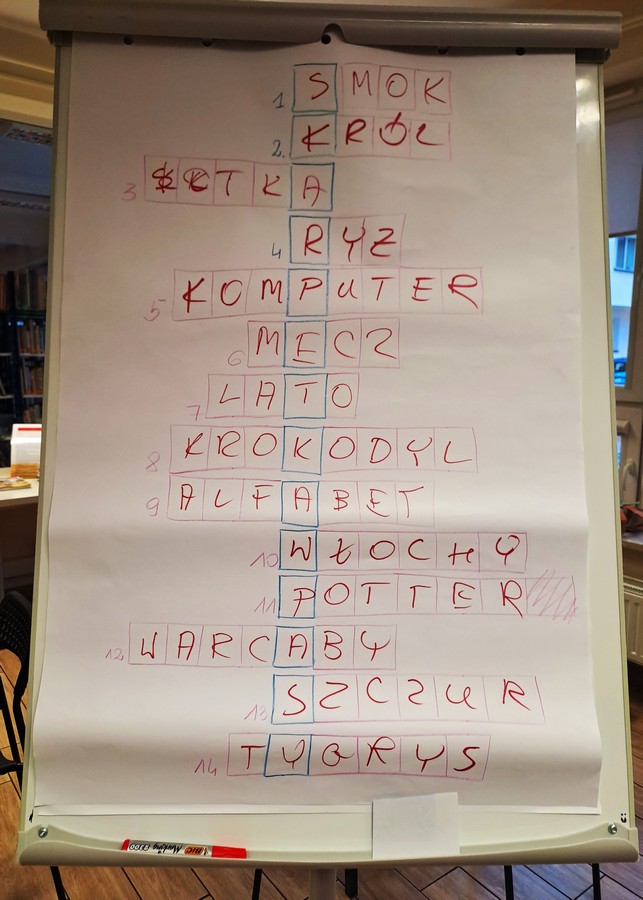 1 SMOK
2. KRÓL
3 KTKA
4 RYŻ
5 KOMPUTER
6 MECZ
7 LATO
8 KROKODYL
9 ALFABET
10 WŁOCHY
11 POTTER
12 WARCABY
13 SZCZUR
14 TYGRYS